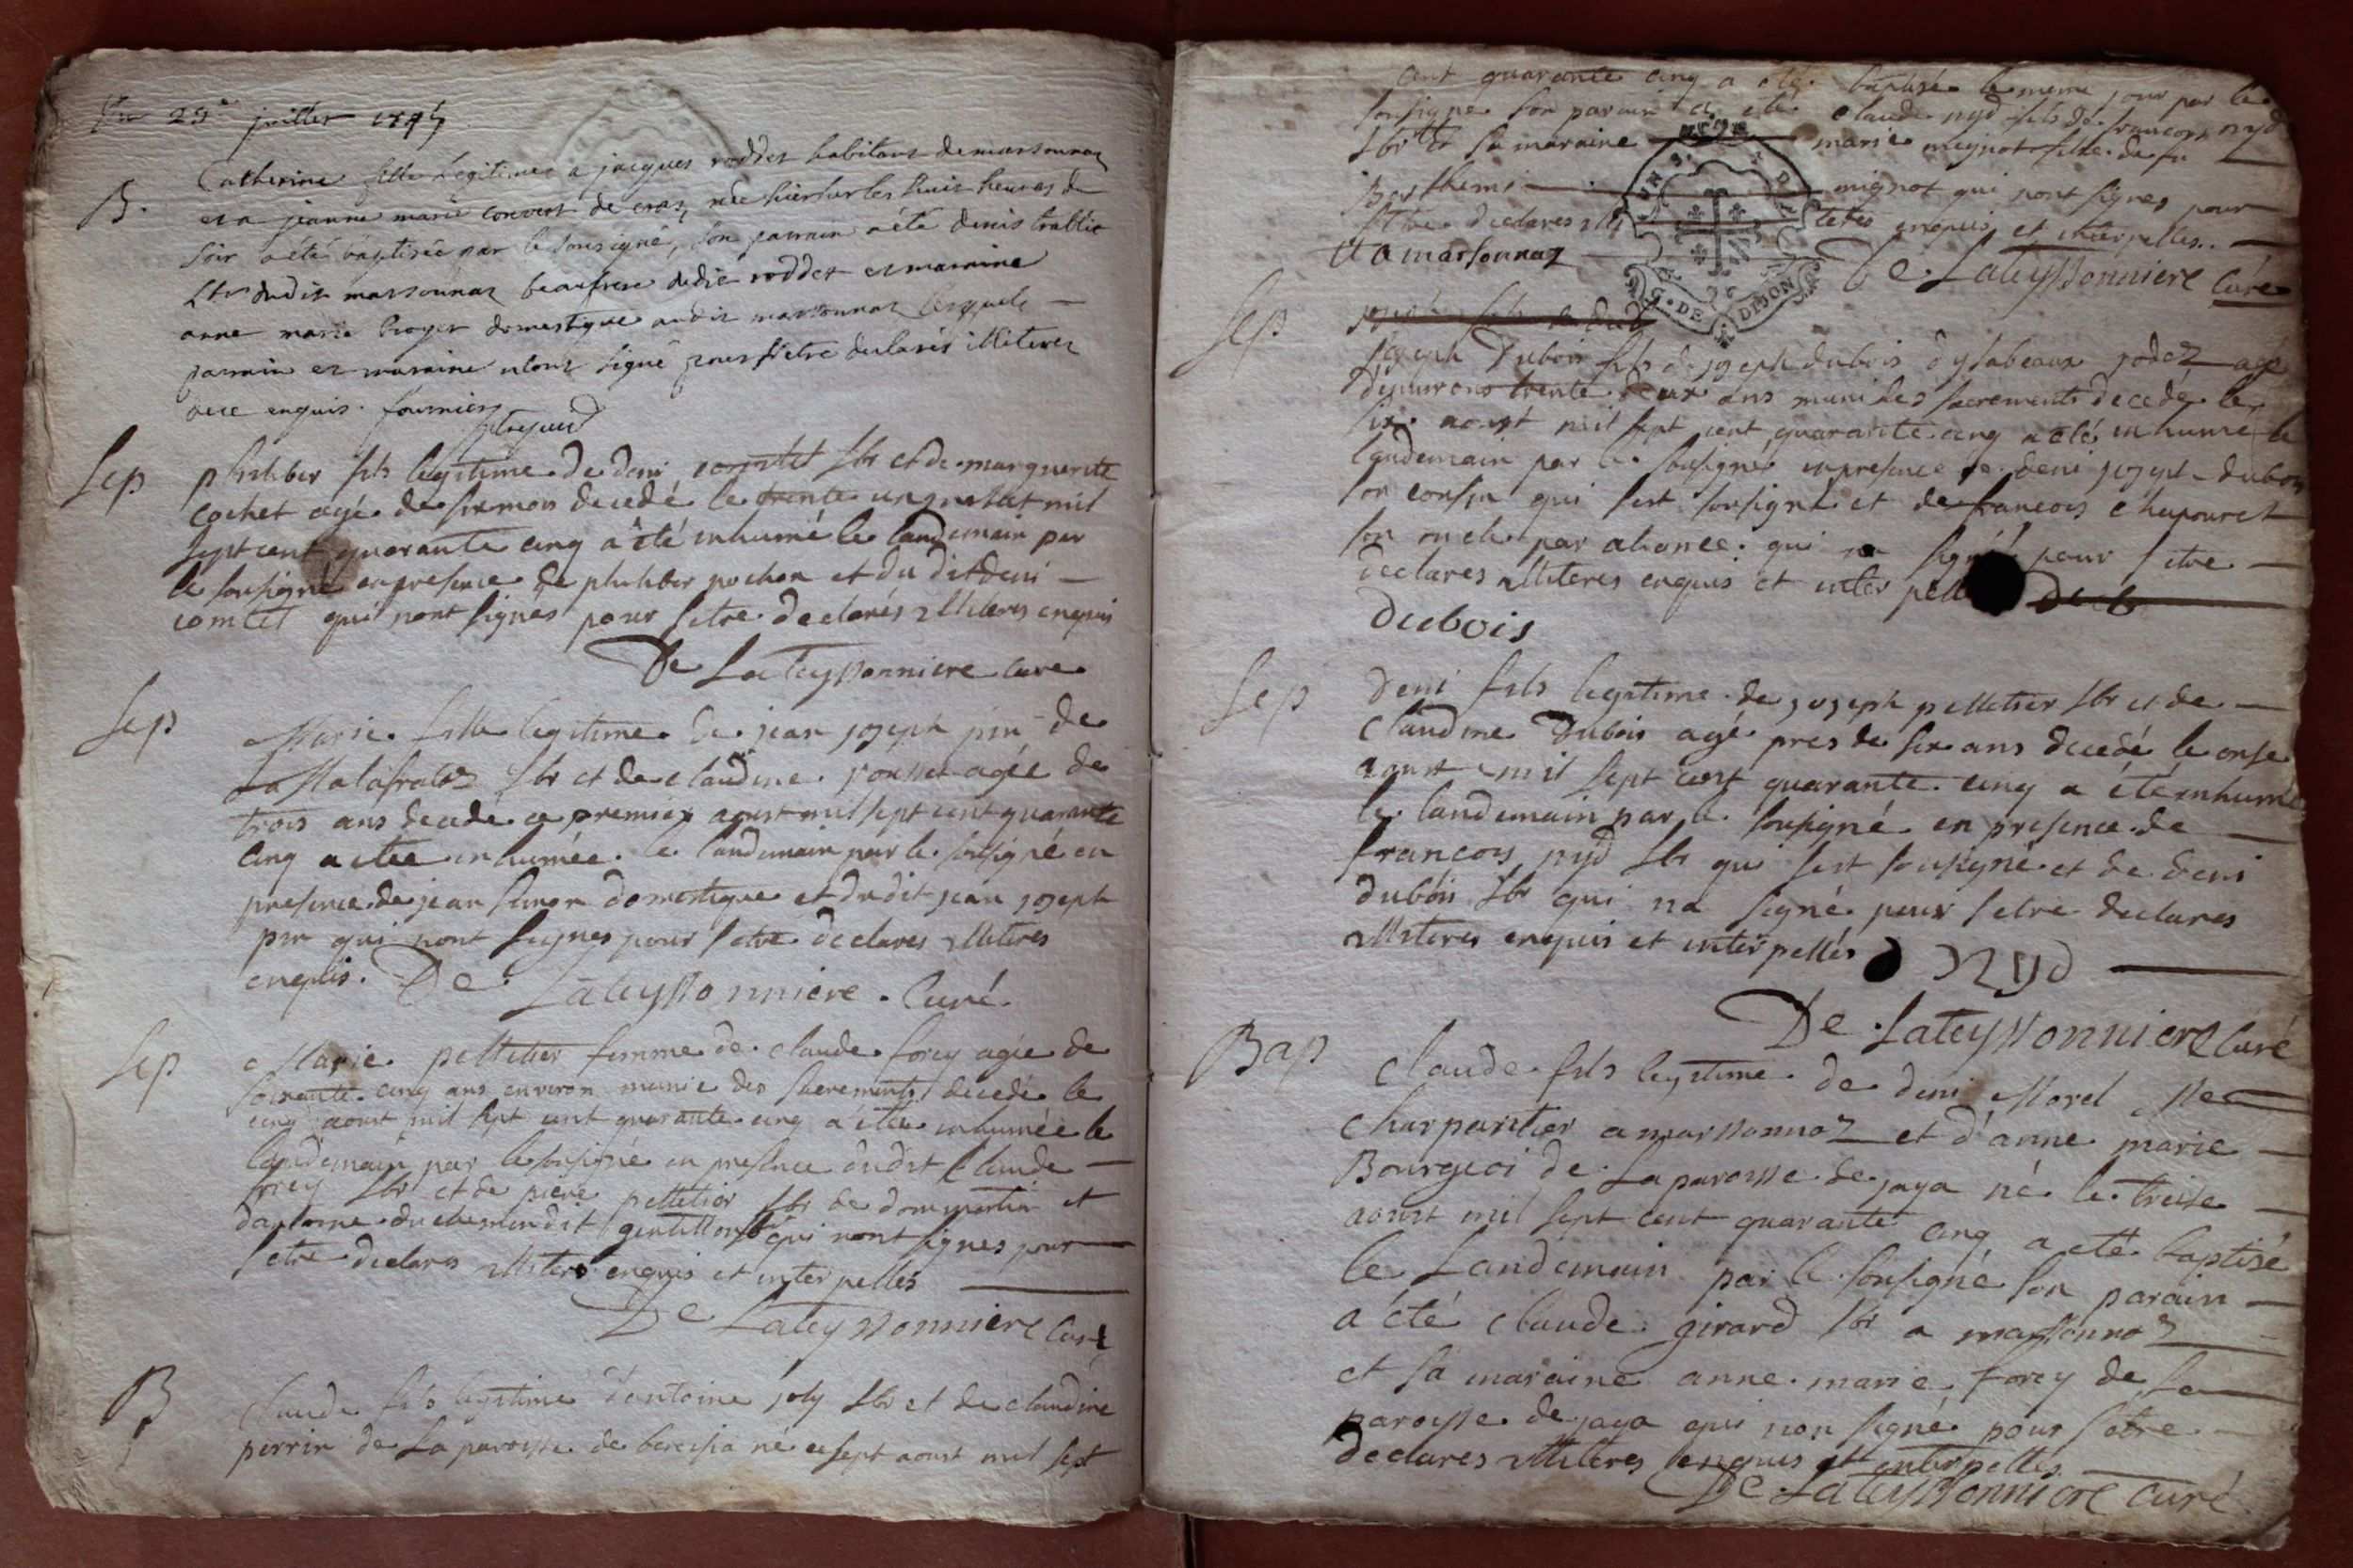 juillet 1745
B.
Catherine fille Légitime a jacques roddet habitant demarsonnaz
et a jeanne marie convert de cras, née hier sur les huit heures du
soir a été baptisée par le soussigné, son parrain a été denis
Lbr dudit marsonnaz beaufrere dudit roddet et marraine
anne marie broyer domestique audit marsonnaz lesquels
parrain et marraine n'ont signé pour s'etre declarés illiteres
de ce enquis. fournier
Sep
philiber fils legitime de deni comtet Lbr et de marguerite
cochet agé de six mois decedé le trente un juillet mil
sept cent quarante cinq a été inhumé le landemain par
le sousigné en presence de philiber pochon et du dit deni
comtet qui nont signes pour setre declarés illiteres enquis
De Lateyssonniere Cure
Sep
Marie fille legitime de jean joseph pin de
La Malafretaz Lbr et de claudine agée de
trois ans decedé ce premier aoust mil sept cent quarante
cinq a etée inhumée le landemain par le sousigné en
presence de jean domestique et dudit jean joseph
pin qui nont signes pour setre declares illiteres
enquis. De Lateyssonniere. Curé.
Sep
Marie pelletier femme de claude forey agée de
soixante cinq ans environ munie des sacrements decedée le
cinq aoust mil sept cent quarante cinq a étée inhumée le
landemain par le sousigné en presence dudit Claude
forey Lbr et de piere pelletier Lbr de dommartin et
qui nont signes pour
setre declares illiteres enquis et interpellés
De Lateyssonniere Curé
B
Claude fils legitime d'antoine joly Lbr et de claudine
perrin de La paroisse de beresia né ce sept aoust mil sept
cent quarante cinq a été baptisé le meme jour par le
sousigné son parain a été claude nyd fils de francois nyd
Lbr et sa maraine marie mignot fille de fu
Barthemi mignot qui nont signes pour
setre declares illiteres enquis et interpelles.
a marsonnaz
De. Lateyssonniere Curé
G. DE DIJON
Sep
joseph Dubois fils de joseph dubois d'ysabeaux agé
denvirons trente deux ans muni des sacrements decedé le
six aoust mil sept cent quarante cinq a été inhumé le
landemain par le sousigné en presence de deni joseph dubois
son cousin qui sest sousigné et de francois chapouret
son oncle par aliance qui na signé pour setre
declares illiteres enquis et interpellé
Dubois
Sep
Deni fils legitime de joseph pelletier Lbr et de
Claudine Dubois agé pres de six ans decedé le onse
aoust mil sept cent quarante cinq a été inhumé
le landemain par le sousigné en presence de
francois nyd Lbr qui sest sousigné et de deni
dubois Lbr qui na signé pour setre declares
illiteres enquis et interpellés
nyd
De Lateyssonniere Curé
Bap
Claude fils legitime de deni Morel Me
charpantier a marsonnaz et d'anne marie
Bourgeoi de La paroisse de jaya né le treise
aoust mil sept cent quarante cinq a été baptisé
le Landemain par le sousigné son parain
a été claude girard Lbr a marsonnaz
et sa maraine anne marie forey de la
paroisse de jaya qui non signé pour setre
declares illiteres enquis et interpellés
De Lateyssonniere Curé